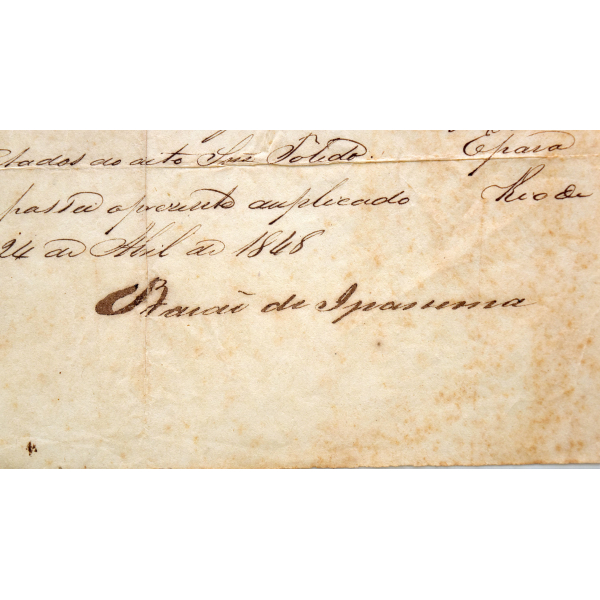 ctados do dito Snr Toledo. E para
passa o prezente duplicado Rio de
24 de Abril de 1848
Barão de Ipanema